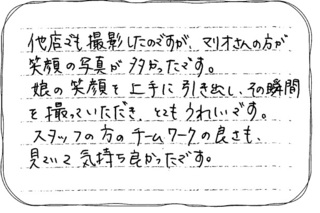 他店でも撮影したのですが、マリオさんの方が
笑顔の写真が多かったです。
娘の笑顔を上手に引き出し、その瞬間
を撮っていただき、とてもうれしいです。
スタッフの方のチームワークの良さも、
見ていて気持ち良かったです。